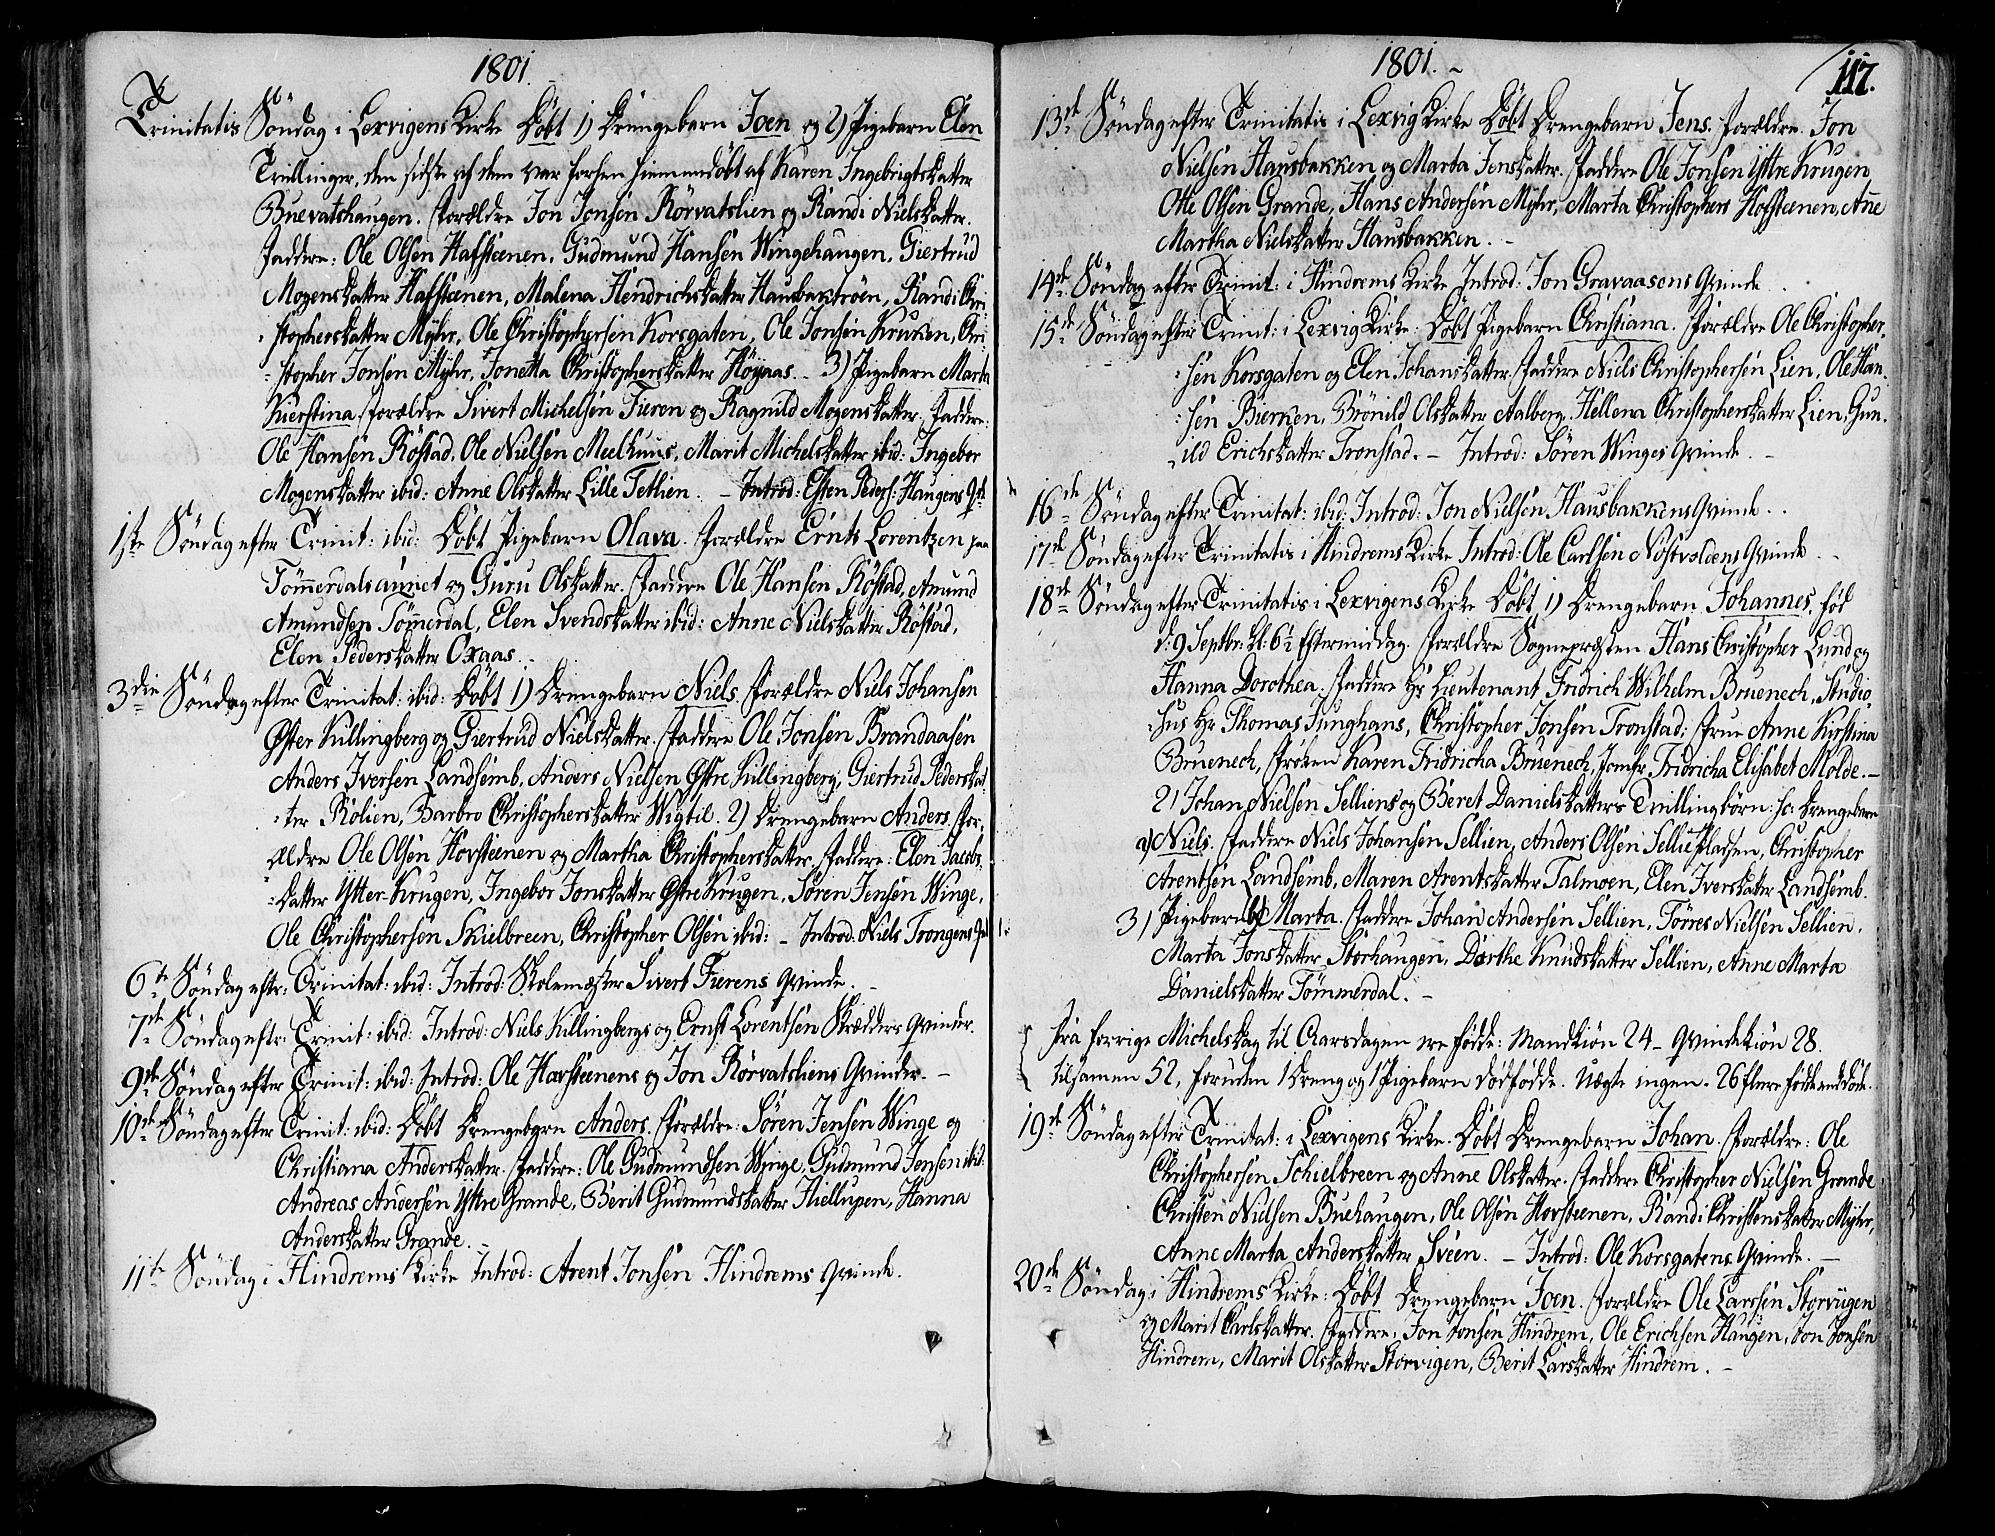 1801.
Trinitatis Søndag i Lexvigens Kirke Døbt 1) Drengebarn Joen og 2) Pigebarn Elen
Tvillinger, den sidste af dem var forhen hiemmedøbt af Karen Ingebrigtsdatter
Buevatshaugen. Forældre Jon Jonsen Rörvatslien og Randi Nielsdatter.
Faddere: Ole Olsen Hafsteenen, Gudmund Hansen Wingehaugen, Giertrud
Mogensdatter Hafsteenen, Malena Hendrichsdatter Hausbaktröen, Randi Chri
stophersdatter Myhr, Ole Christophersen Korsgaten, Ole Jonsen Kruken, Chri
stopher Jonsen Myhr, Jonetta Christophersdatter Höyaas. 3) Pigebarn Marta
Kierstina, forældre Sivert Michelsen Fieren og Ragnild Mogensdatter. Faddere:
Ole Hansen Röstad, Ole Nielsen Meelhuus, Marit Michelsdatter ibid: Ingebor
Mogensdatter ibid: Anne Olsdatter Lille Tetlien. – Introd: Esten Peders: Haugens Qv:
1ste Søndag efter Trinit: ibid: Døbt Pigebarn Olava. Forældre Ernts Lorentzen paa
Tömmerdalsaunet og Guru Olsdatter. Faddere Ole Hansen Röstad, Amund
Amundsen Tömmerdal, Elen Svendsdatter ibid: Anne Nielsdatter Röstad,
Elen Pedersdatter Oxaas.
3die Søndag efter Trinitat: ibid: Døbt 1) Drengebarn Niels. Forældre Niels Johansen
Øster Killingberg og Giertrud Nielsdatter. Faddere Ole Jonsen Brandaasen
Anders Iversen Landsemb, Anders Nielsen Østre Killingberg, Giertrud Pedersdat
ter Rölien, Barbro Christophersdatter Wigtil. 2) Drengebarn Anders, For
ældre Ole Olsen Hovsteenen og Martha Christophersdatter. Faddere: Elen Jacobs
datter Ytter-Krugen, Ingebor Jonsdatter Østre Krugen, Sören Jensen Winge,
Ole Christophersen Skielbreen, Christopher Olsen ibid: – Introd: Niels Trongens Qv:
6te Søndag eftr: Trinitat: ibid: Introd: Skolemester Sivert Fierens Qvinde.
7de Søndag eftr: Trinit: ibid: Introd: Niels Killingbergs og Ernst Lorentsen Skrædders Qvinder.
9de Søndag efter Trinit: ibid: Introd: Ole Hovsteenens og Jon Rörvatsliens Qvinder. –
10de Søndag efter Trinit: ibid: Døbt Drengebarn Anders. Forældre: Sören Jensen Winge og
Christiana Andersdatter. Faddere: Ole Gudmundsen Winge, Gudmund Jensen ibid:
Andreas Andersen Yttre Grande, Berit Gudmundsdatter Hiellupen, Hanna
Andersdatter Grande. –
11te Søndag i Hindrems Kirke Introd: Arent Jonsen Hindrems Qvinde.
1801.
117.
13de Søndag efter Trinitatis i Lexvig Kirke Døbt Drengebarn Jens. Forældre. Jon
Nielsen Hausbakken og Marta Jensdatter. Faddere Ole Jonsen Yttre Krugen
Otte Olsen Grande, Hans Andersen Myhr, Marta Christophers Hofsteenen, Ane
Martha Nielsdatter Hausbakken. –
14de Søndag efter Trinit: i Hindrems Kirke Introd: Jon Gravaasens Qvinde.
15de Søndag efter Trinit: i Lexvig Kirke: Døbt Pigebarn Christiana. Forældre Ole Christopher
sen Korsgaten og Elen Johansdatter. Faddere Niels Christophersen Lien, Ole Han
sen Bierken, Brönild Olsdatter Aalberg, Hellena Christophersdatter Lien, Gun
ild Erichsdatter Tronstad. – Introd: Sören Winges Qvinde.
16de Søndag efter Trinitat: ibid: Introd: Jon Nielsen Hausbakkens Qvinde.
17de Søndag efter Trinitatis i Hindrems Kirke Introd: Ole Carlsen Nostvoldens Qvinde
18de Søndag efter Trinitatis i Lexvigens Kirke Døbt 1) Drengebarn Johannes, fød
d: 9 Septbr: Kl: 6½ Eftermiddag. Forældre Sognepresten Hans Christopher Lund og
Hanna Dorothea. Faddere Hr Lieutenant Fridrich Wilhelm Bruenech, Studio
sus Hr Thomas Junghans, Christopher Jonsen Tronstad, Frue Anne Kirstina
Bruenech, Frøken Karen Fridricha Bruenech, Jomfr. Fridricha Elisabet Molde. –
2) Johan Nielsen Selliens og Beret Danielsdatters Tvillingbörn: sc: Drengebarn
a) Niels. Faddere Niels Johansen Sellien, Anders Olsen Sellie Pladsen, Christopher
Arentsen Landsemb, Maren Arentsdatter Talmoen, Elen Iversdatter Landsemb.
3) Pigebarn b) Marta. Faddere Johan Andersen Sellien, Törres Nielsen Sellien,
Marta Jonsdatter Storhaugen, Dorthe Knudsdatter Sellien, Anne Marta
Danielsdatter Tömmerdal. –
Fra forrige Michelsdag til Aarsdagen ere fødde: Mandkiön 24 – Qvindekiön 28.
tilsamen 52, foruden 1 Dreng og 1 Pigebarn dødfødde. Uægte ingen. 26 flere fødde end døde.
19de Søndag efter Trinitat: i Lexvigens Kirke. Døbt Drengebarn Johan. Forældre: Ole
Christophersen Schielbreen og Anne Olsdatter. Faddere Christopher Nielsen Grande
Christen Nielsen Buehaugen, Ole Olsen Hovsteenen, Randi Christensdatter Myhr,
Anne Marta Andersdatter Sveen. – Introd: Ole Korsgatens Qvinde. –
20de Søndag i Hindrems Kirke: Døbt Drengebarn Joen. Forældre Ole Larssen Storvigen
og Marit Carlsdatter. Faddere, Jon Jonsen Hindrem, Ole Erichsen Haugen, Jon Jonsen
Hindrem, Marit Olsdatter Storvigen, Berit Larsdatter Hindrem. –